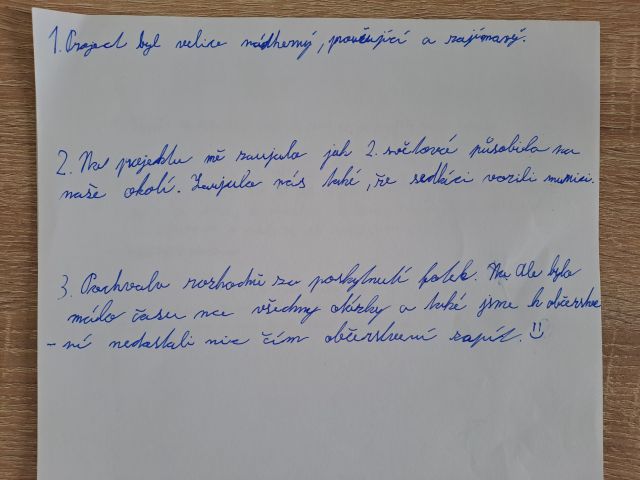 1. Project byl velice nádherný, poučující a zajímavý.
2. Na projektu mě zaujalo jak 2. světová působila na
naše okolí. Zaujalo nás také, že sedláci vozili munici.
3. Pochvala rozhodně za poskytnutí fotek. Ale bylo
málo času na všechny otázky a také jsme k občerstve
-ní nedostali nic čím občerstvení zapít. :)